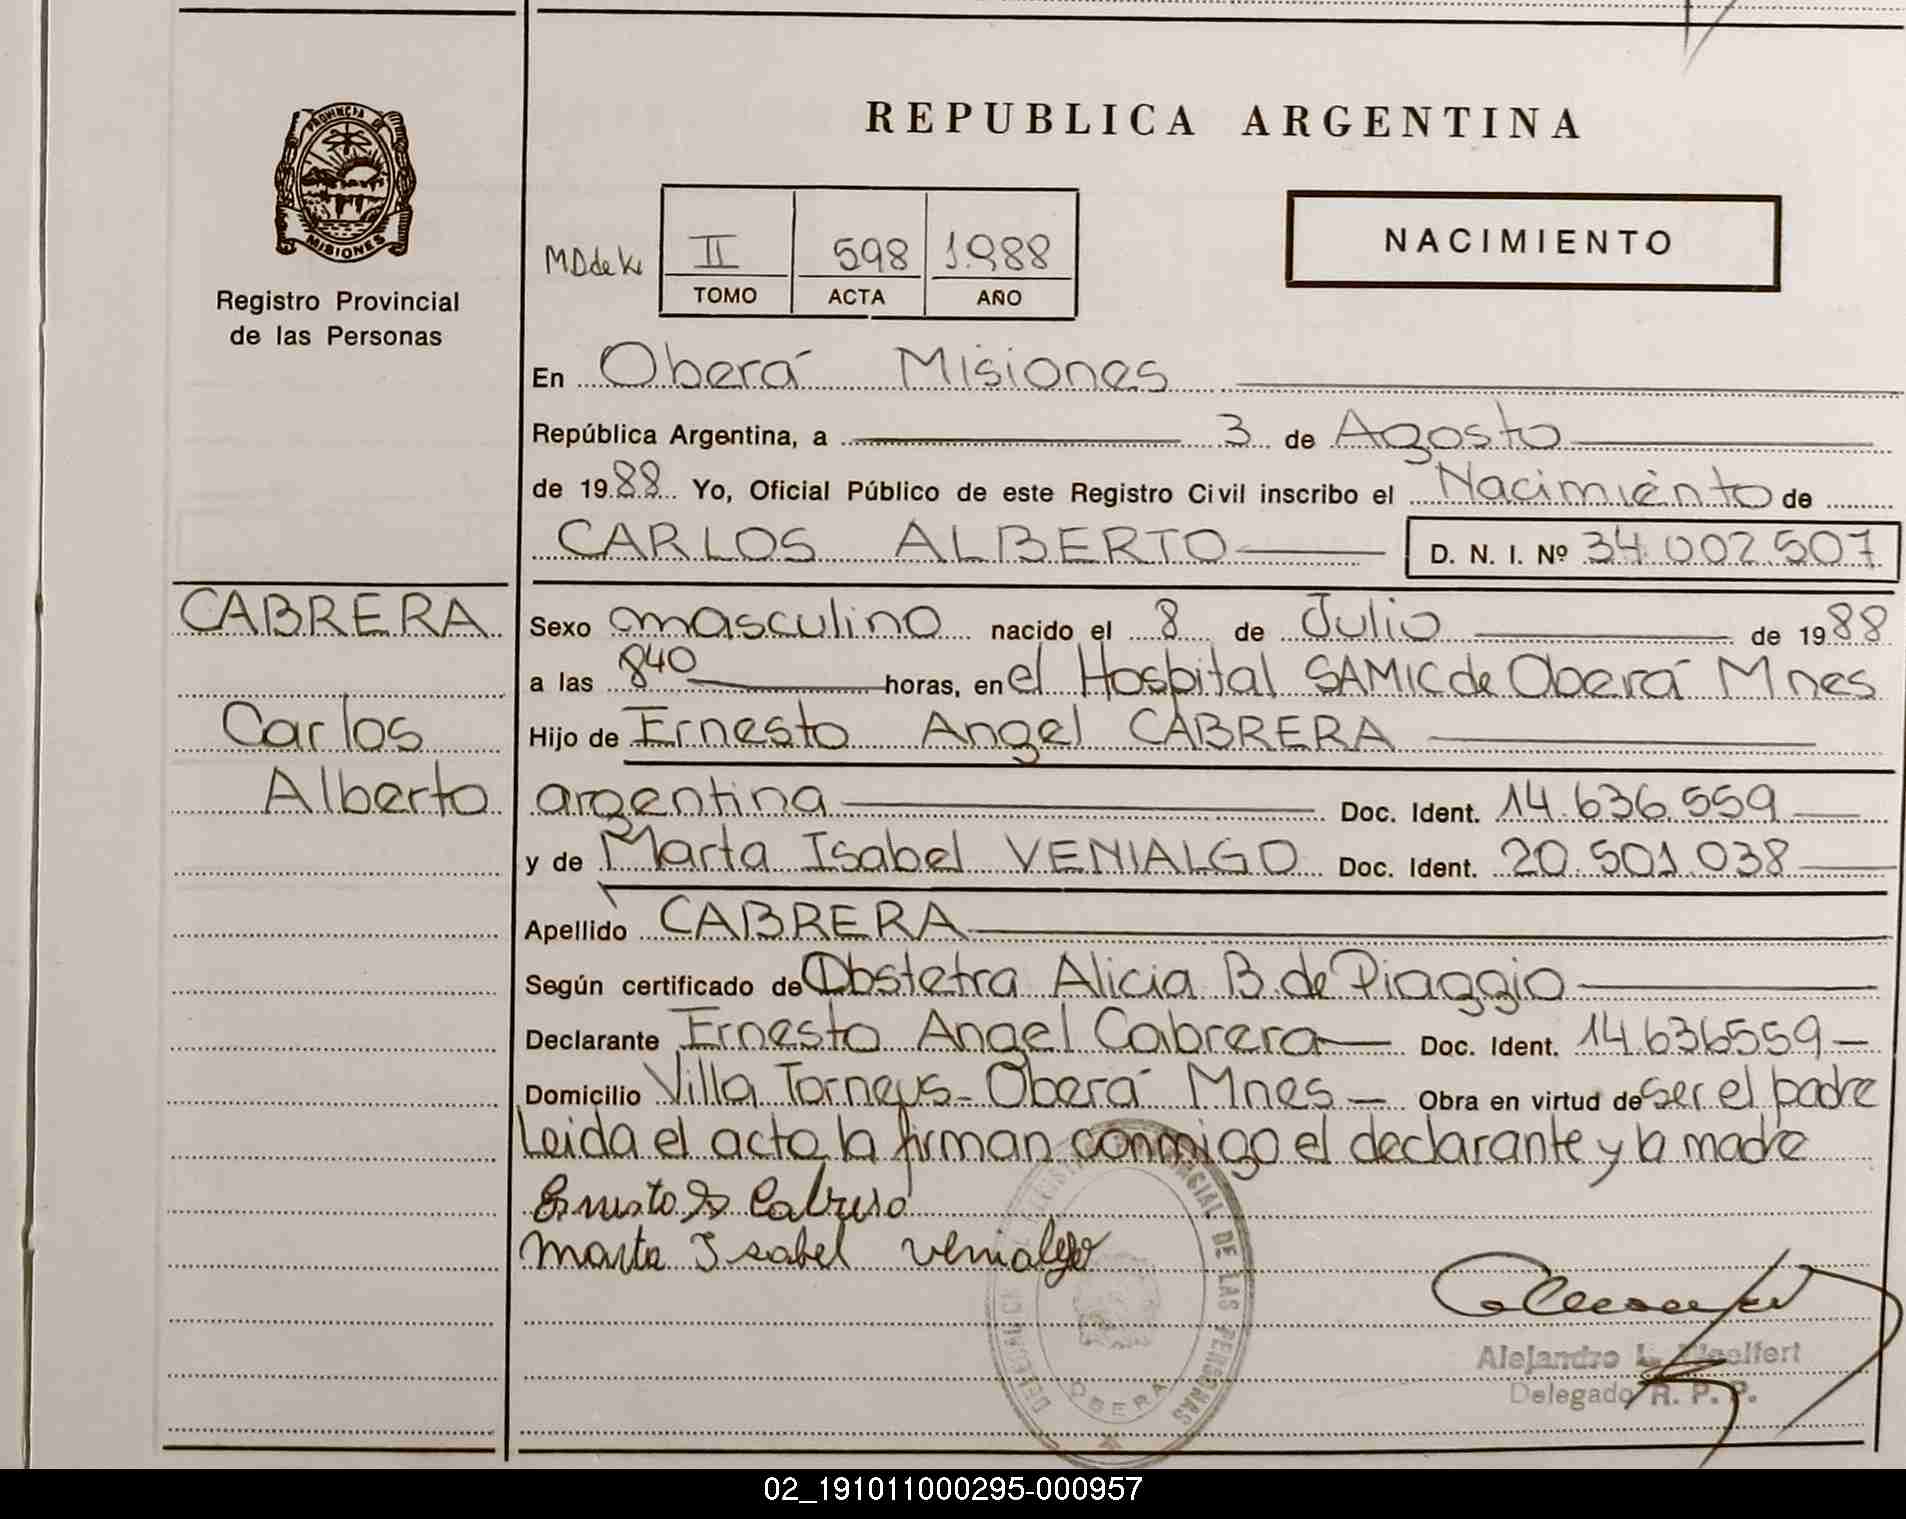 REPUBLICA ARGENTINA
PROVINCIA DE
MISIONES
Registro Provincial
de las Personas
MDdeK
II 598 1.988
TOMO ACTA AÑO
NACIMIENTO
En Oberá Misiones
República Argentina, a 3 de Agosto
de 1988 Yo, Oficial Público de este Registro Civil inscribo el Nacimiento de
CARLOS ALBERTO D. N. I. Nº 34.002.507
CABRERA
Carlos
Alberto
Sexo masculino nacido el 8 de Julio de 1988
a las 840 horas, en el Hospital SAMIC de Oberá Mnes
Hijo de Ernesto Angel CABRERA
argentina Doc. Ident. 14.636.559
y de Marta Isabel VENIALGO Doc. Ident. 20.501.038
Apellido CABRERA
Según certificado de Obstetra Alicia B. de Piaggio
Declarante Ernesto Angel Cabrera Doc. Ident. 14.636559
Domicilio Villa Torneus - Oberá Mnes Obra en virtud de ser el padre
Leida el acta la firman conmigo el declarante y la madre
Ernesto A Cabrera
Marta Isabel Venialgo
DELEGACION REGISTRO PROVINCIAL DE LAS PERSONAS
OBERA
Alejandro L.
Delegado R. P. P.
02_191011000295-000957